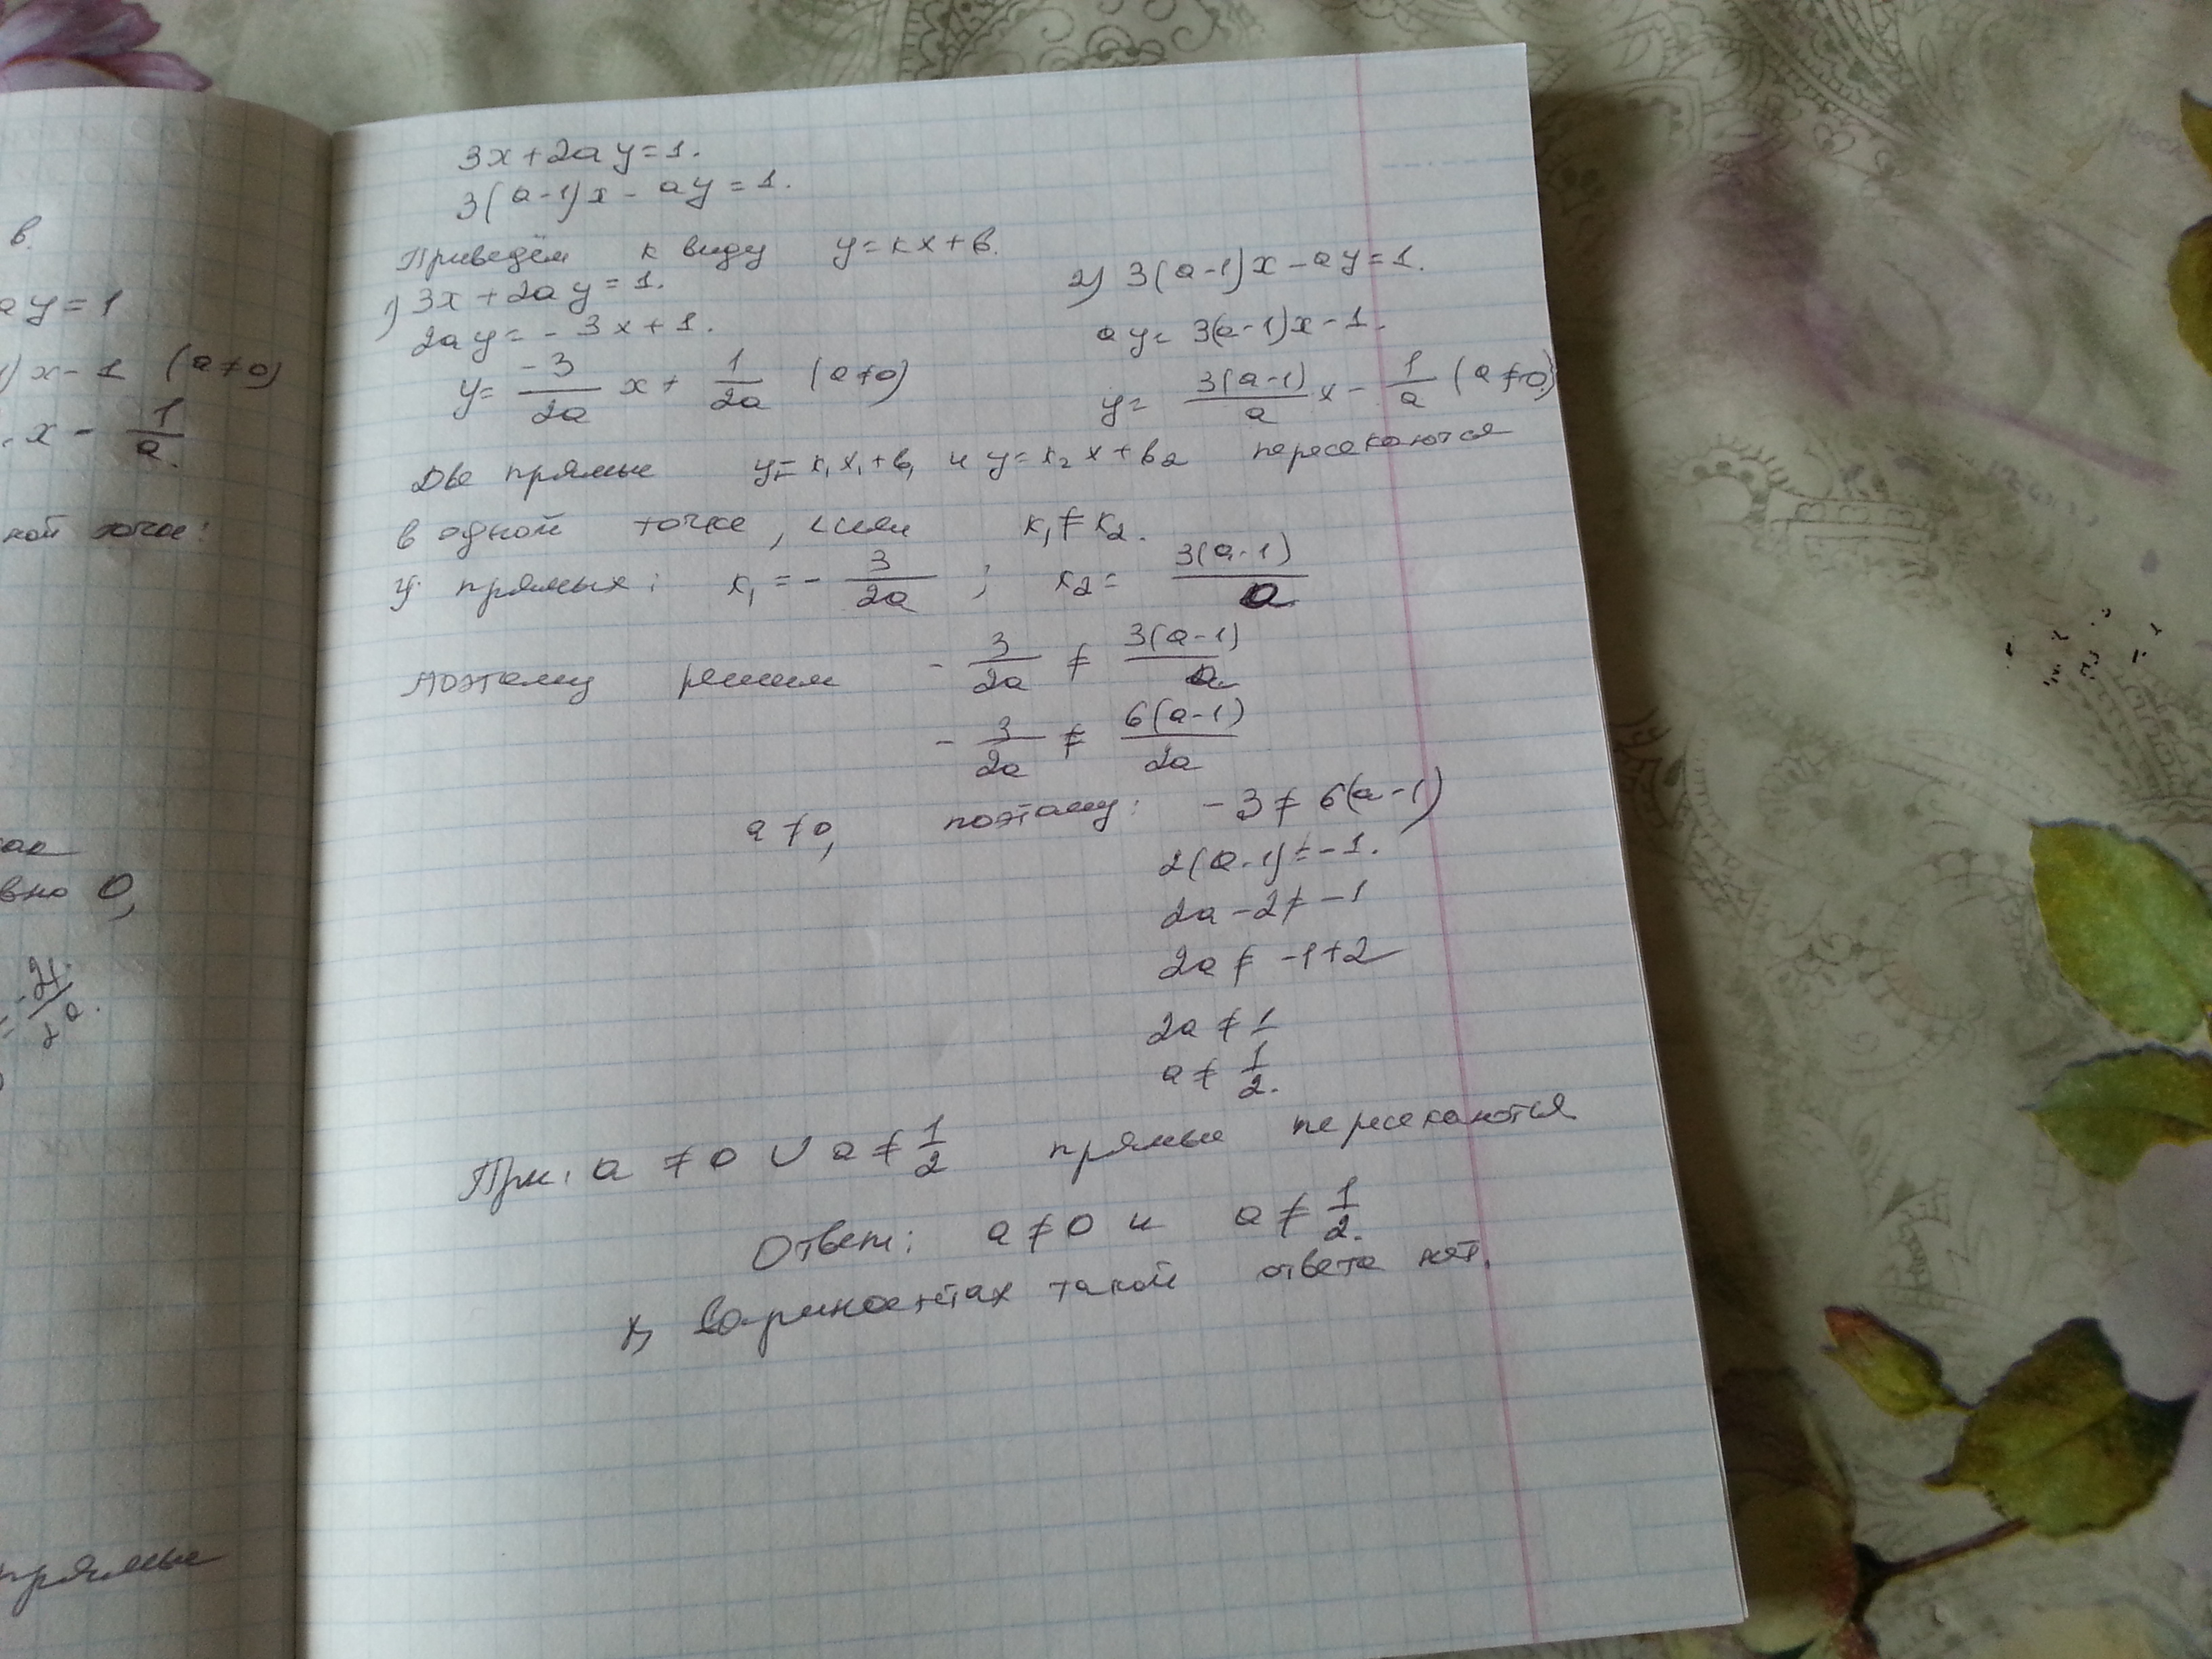 в.
ay = 1
) x - 1 (a ≠ 0)
x - 1/a.
ной точке:
вно 0,
прямые
3x + 2ay = 1.
3(a-1)x - ay = 1.
Приведём к виду y = kx + b.
1) 3x + 2ay = 1.
2ay = - 3x + 1.
y = -3/2a x + 1/2a (a ≠ 0)
2) 3(a-1)x - ay = 1.
ay = 3(a-1)x - 1.
y = 3(a-1)/a x - 1/a (a ≠ 0)
Две прямые y = k₁x₁ + b₁ и y = k₂x + b₂ пересекаются
в одной точке, если k₁ ≠ k₂.
У прямых: k₁ = - 3/2a ; k₂ = 3(a-1)/a
Поэтому решим - 3/2a ≠ 3(a-1)/a
- 3/2a ≠ 6(a-1)/2a
a ≠ 0, поэтому: -3 ≠ 6(a-1)
2(a-1) ≠ -1.
2a - 2 ≠ -1
2a ≠ -1+2
2a ≠ 1
a ≠ 1/2.
При: a ≠ 0 ∪ a ≠ 1/2 прямые пересекаются
Ответ: a ≠ 0 и a ≠ 1/2.
В вариантах такой ответа нет.